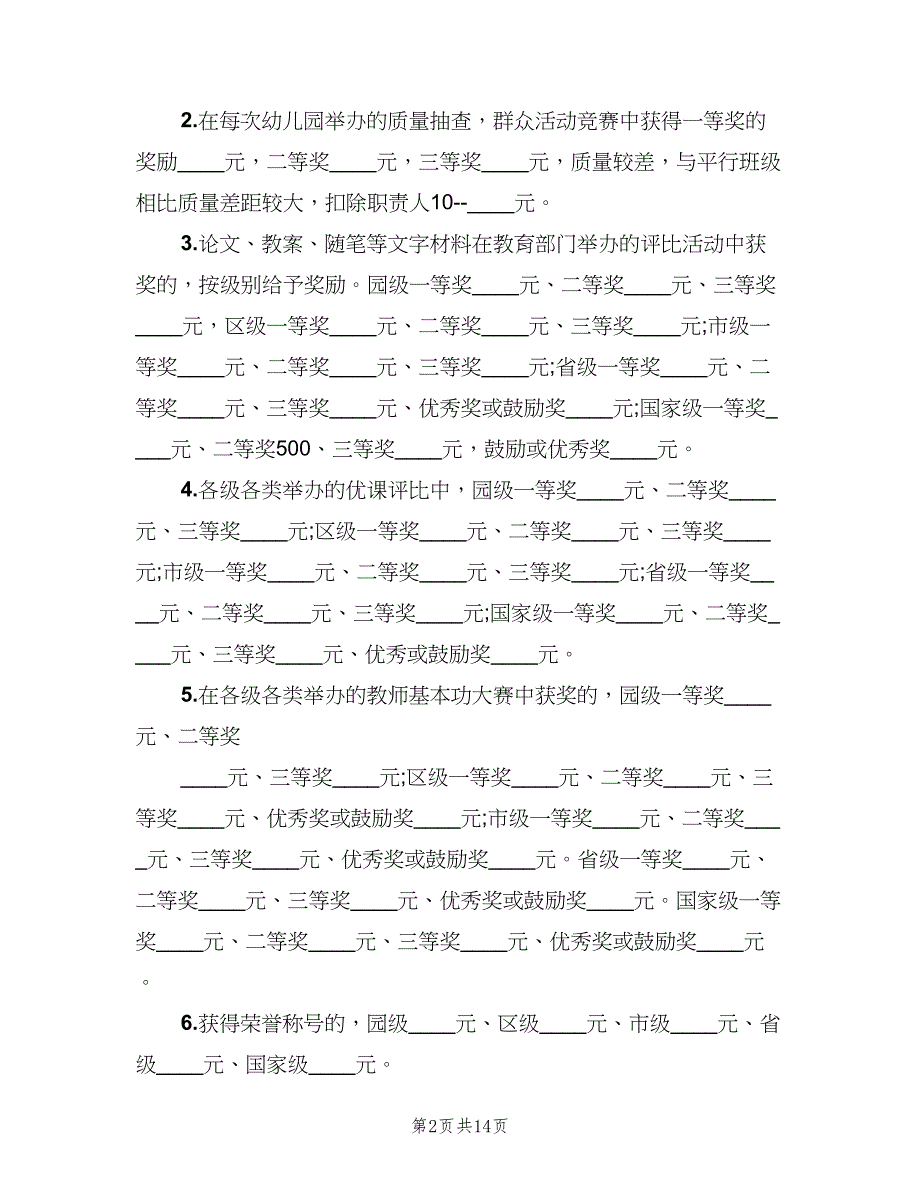 2.在每次幼儿园举办的质量抽查，群众活动竞赛中获得一等奖的
奖励____元，二等奖____元，三等奖____元，质量较差，与平行班级
相比质量差距较大，扣除职责人10--____元。
3.论文、教案、随笔等文字材料在教育部门举办的评比活动中获
奖的，按级别给予奖励。园级一等奖____元、二等奖____元、三等奖
____元，区级一等奖____元、二等奖____元、三等奖____元;市级一
等奖____元、二等奖____元、三等奖____元;省级一等奖____元、二
等奖____元、三等奖____元、优秀奖或鼓励奖____元;国家级一等奖_
___元、二等奖500、三等奖____元，鼓励或优秀奖____元。
4.各级各类举办的优课评比中，园级一等奖____元、二等奖____
元、三等奖____元;区级一等奖____元、二等奖____元、三等奖____
元;市级一等奖____元、二等奖____元、三等奖____元;省级一等奖__
__元、二等奖____元、三等奖____元;国家级一等奖____元、二等奖_
___元、三等奖____元、优秀或鼓励奖____元。
5.在各级各类举办的教师基本功大赛中获奖的，园级一等奖____
元、二等奖
____元、三等奖____元;区级一等奖____元、二等奖____元、三
等奖____元、优秀奖或鼓励奖____元;市级一等奖____元、二等奖___
_元、三等奖____元、优秀奖或鼓励奖____元。省级一等奖____元、
二等奖____元、三等奖____元、优秀奖或鼓励奖____元。国家级一等
奖____元、二等奖____元、三等奖____元、优秀奖或鼓励奖____元
。
6.获得荣誉称号的，园级____元、区级____元、市级____元、省
级____元、国家级____元。
第2页共14页